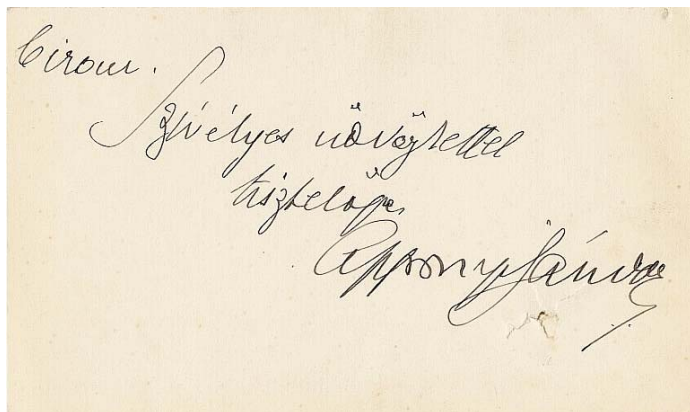 Szívélyes üdvözlettel
tisztelője
Apponyi Sándor